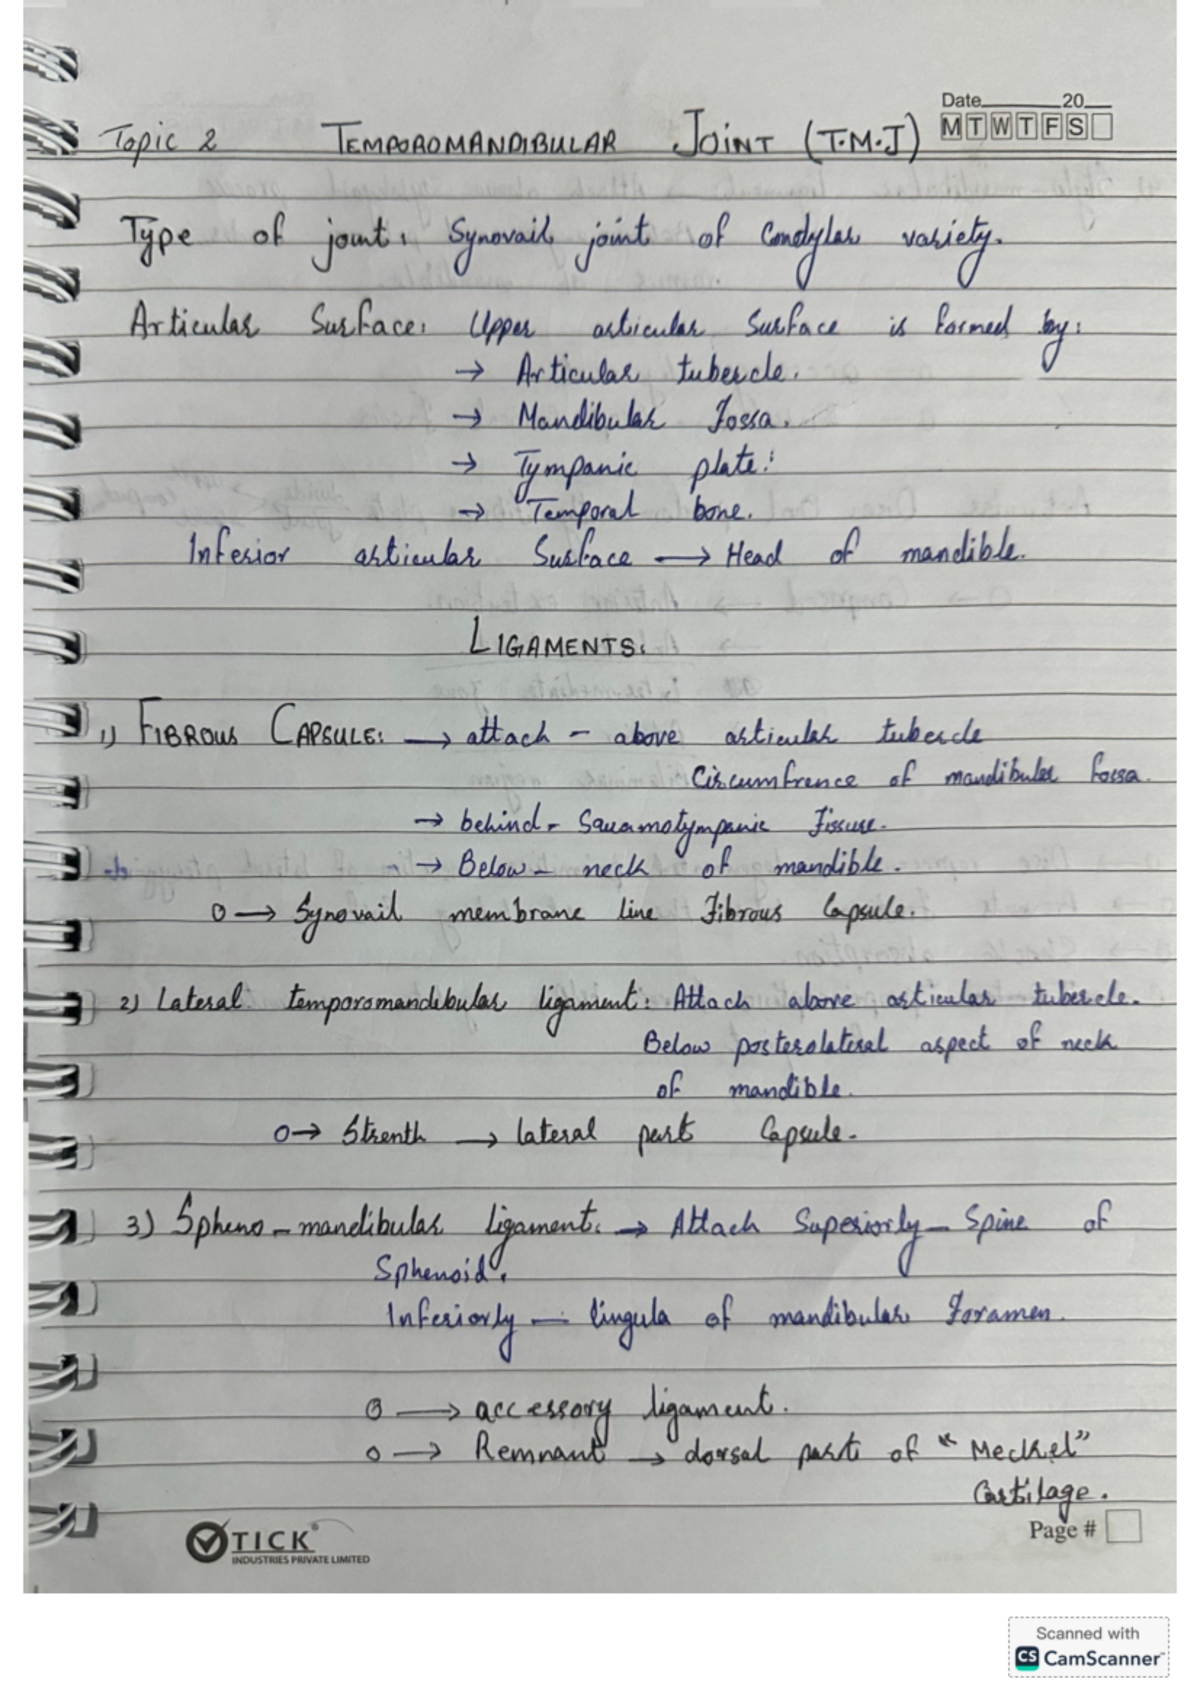 Date 20
M T W T F S
Topic 2 TEMPOROMANDIBULAR JOINT (T.M.J)
Type of joint: Synovail joint of Condylar variety.
Articular Surface: Upper articular Surface is formed by:
→ Articular tubercle.
→ Mandibular Fossa.
→ Tympanic plate:
→ Temporal bone.
Inferior articular Surface → Head of mandible.
LIGAMENTS:
1) FIBROUS CAPSULE: → attach - above articular tubercle
Circumfrence of mandibular fossa.
→ behind - Sauamotympanic Fissure.
→ Below - neck of mandible.
o → Synovail membrane line Fibrous Capsule.
2) Lateral temporomandibular ligament: Attach above articular tubercle.
Below posterolateral aspect of neck
of mandible.
o→ Strenth → lateral part Capsule.
3) Spheno-mandibular ligament: → Attach Superiorly - Spine of
Sphenoid.
Inferiorly - lingula of mandibular Foramen.
o → accessory ligament.
o → Remnant → dorsal part of "Meckel"
Cartilage.
TICK
INDUSTRIES PRIVATE LIMITED
Page #
Scanned with
CS CamScanner